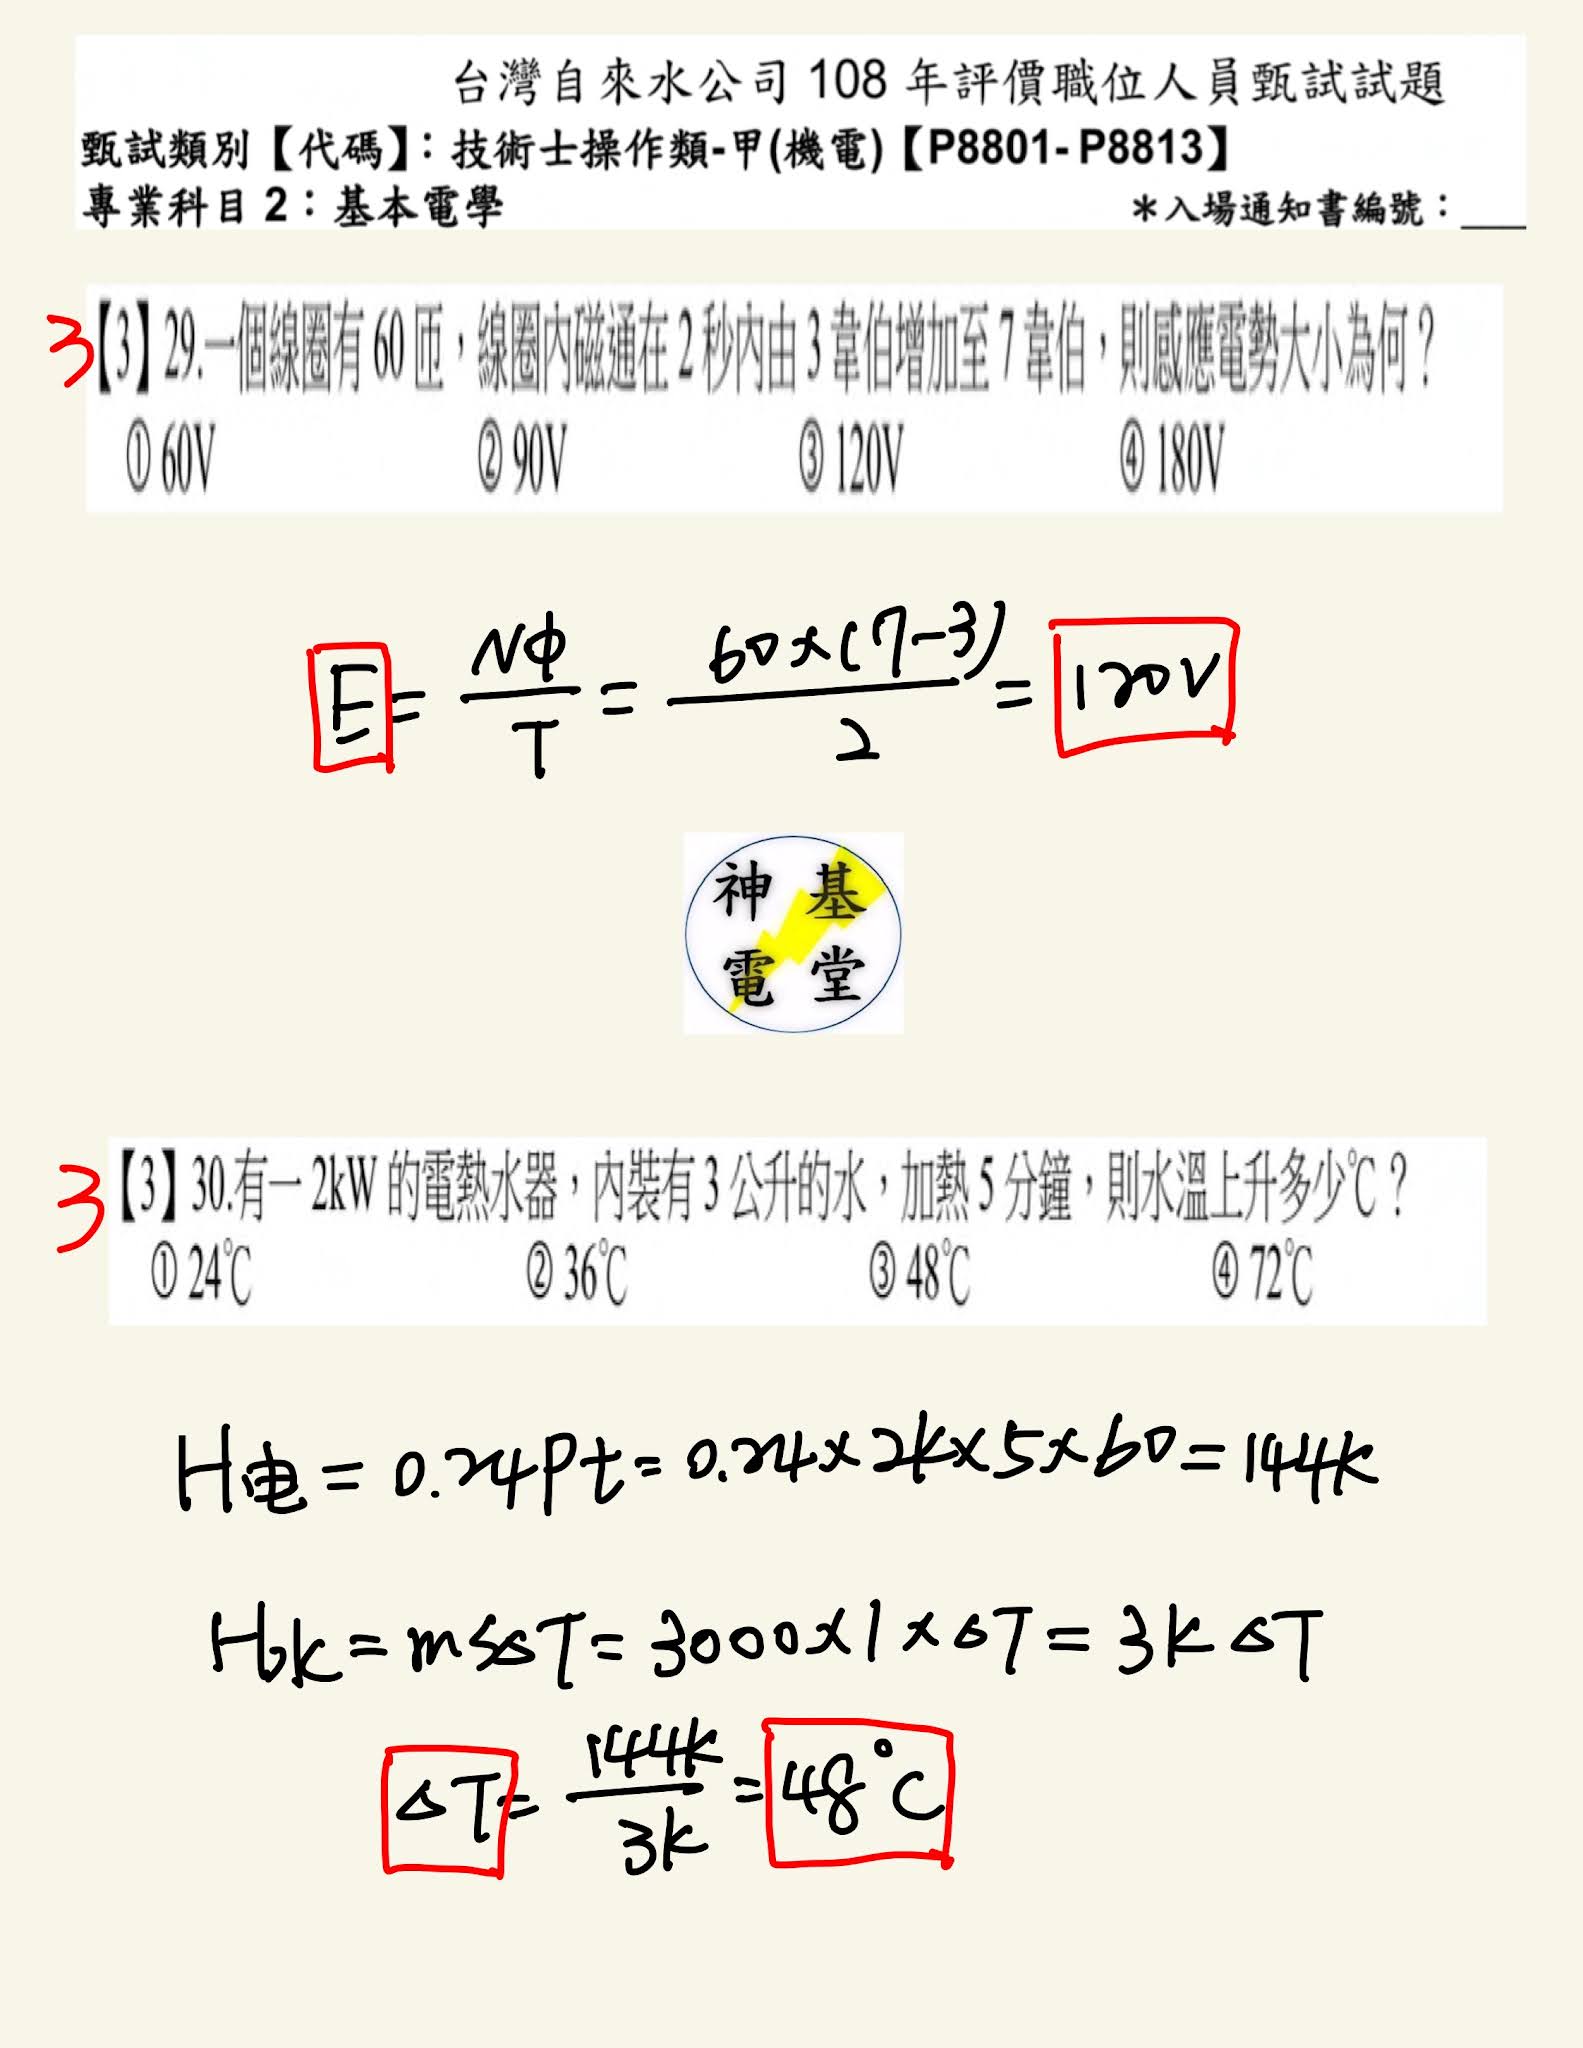 台灣自來水公司 108 年評價職位人員甄試試題
甄試類別【代碼】：技術士操作類-甲(機電)【P8801- P8813】
專業科目 2：基本電學 ＊入場通知書編號：___
3【3】29.一個線圈有 60 匝，線圈內磁通在 2 秒內由 3 韋伯增加至 7 韋伯，則感應電勢大小為何？
① 60V ② 90V ③ 120V ④ 180V
E = NΦ/T = 60×(7-3)/2 = 120V
神 基
電 堂
3【3】30.有一 2kW 的電熱水器，內裝有 3 公升的水，加熱 5 分鐘，則水溫上升多少℃？
① 24℃ ② 36℃ ③ 48℃ ④ 72℃
H电 = 0.24Pt = 0.24×2k×5×60 = 144k
H水 = msΔT = 3000×1×ΔT = 3kΔT
ΔT = 144k/3k = 48°C